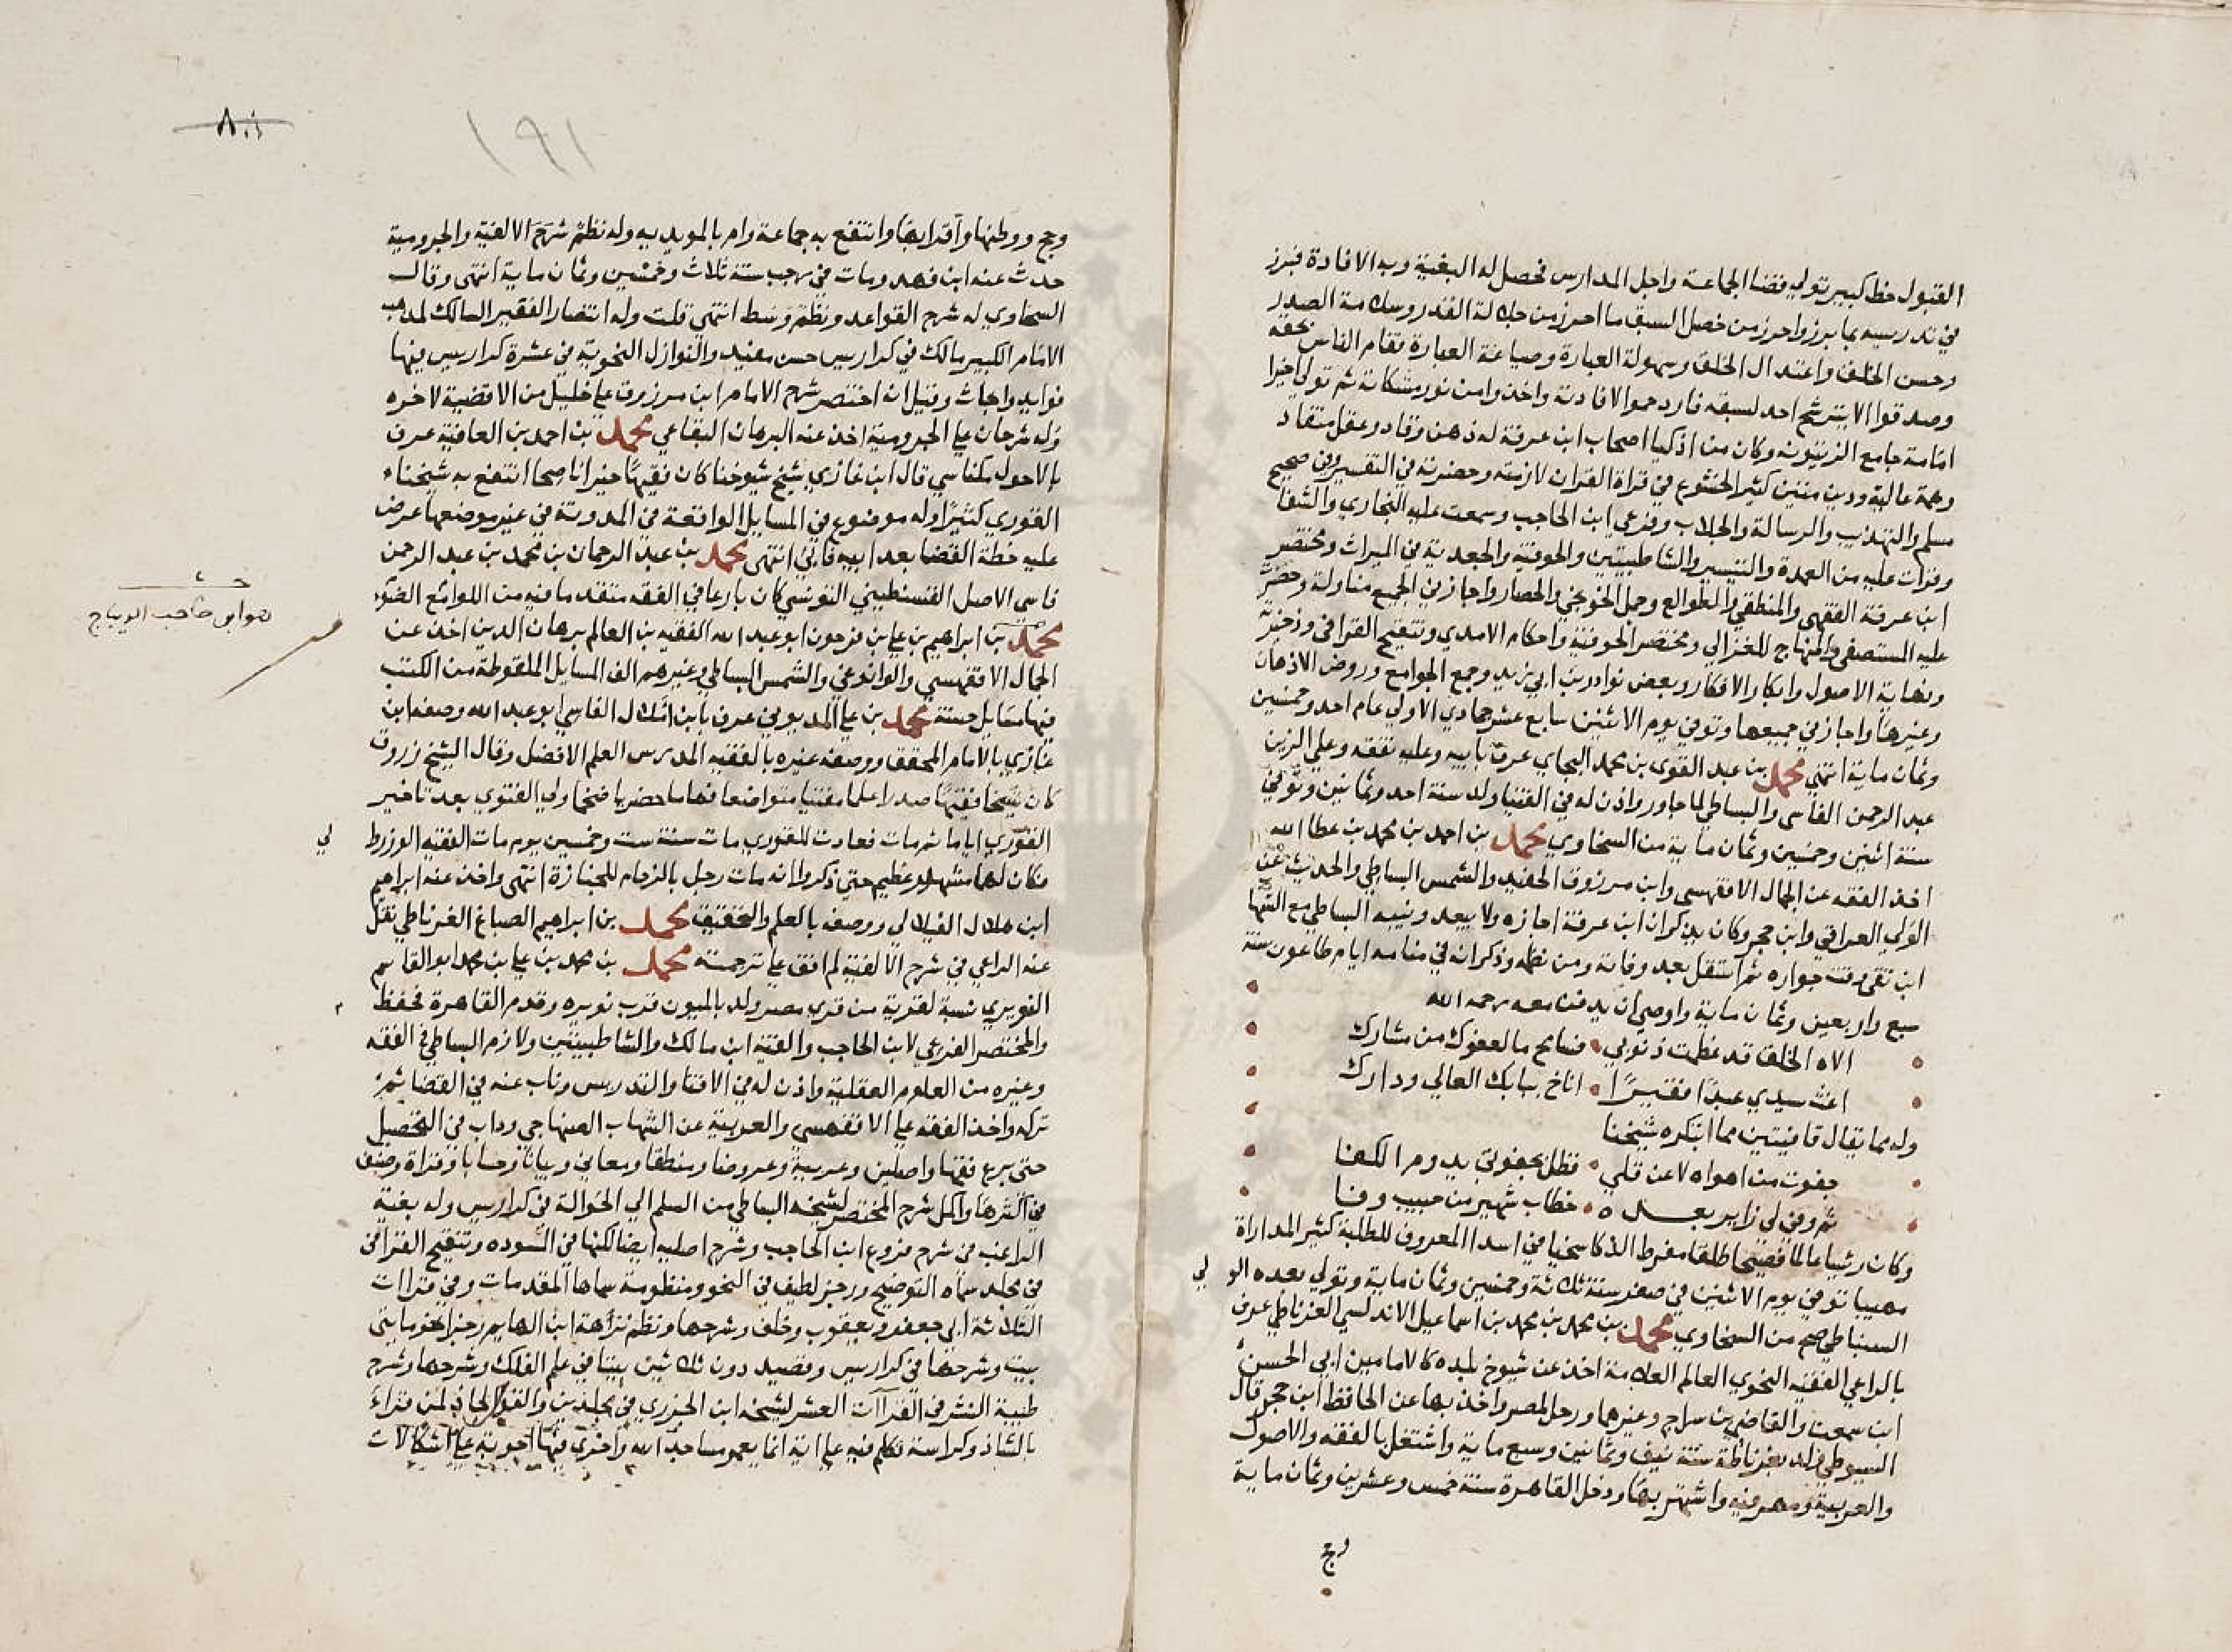 القبول حظ كبير تولي قضا الجماعة واجل المدارس فحصل له البغية وبه الافادة فبرز
في تدريسه بما برز واحرز من خصل السبق ما احرز من جلالة القدر وسلامة الصدر
وحسن الخلق واعتدال الخلق وسهولة العبارة وصياغة العبارة فقام الناس بحقه
وصدقوا الا يترشح احد لسبقه فازدحموا لافادته واخذوا من نور مشكاته ثم تولي اخيرا
امامة جامع الزيتونة وكان من اذكيا اصحاب ابن عرفة له ذهن وقاد وعقل منقاد
وهمة عالية ودين متين كثير الخشوع في قراة القران لازمته وحضرته في التفسير وفي صحيح
مسلم والتهذيب والرسالة والجلاب وفرعي ابن الحاجب وسمعت عليه البخاري والشفا
وقرات عليه من العمدة والتيسير والشاطبيتين والحوفية والجعدية في الميراث ومختصر
ابن عرفة الفقهي والمنطقي والطوالع وجمل الخونجي والحصار واجازني الجميع مناولة وحضرت
عليه المستصفي والمنهاج للغزالي ومختصر الحوفية واحكام الامدي وتنقيح القرافي وذخيرته
ونهاية الاصول وابكار الافكار وبعض نوادر بن ابي زيد وجمع الجوامع وروض الاذهان
وغيرها واجازني جميعها وتوفي يوم الاثنين سابع عشر جمادي الاولي عام احد وخمسين
وثمان ماية انتهي محمد بن عبد القوي بن محمد البجاي عرف بابيه وعليه تفقه وعلي الزين
عبد الرحمن الفاسي والبساطي لما جاور واذن له في الفتيا ولد سنة احد وثمانين وتوفي
سنة اثنين وخمسين وثمان ماية من السخاوي محمد بن احمد بن محمد بن عطا الله
اخذ الفقه عن الجمال الاقفهسي وابن مرزوق الحفيد والشمس البساطي والحديث عن
الولي العراقي وابن حجر وكان يذكر ان ابن عرفة اجازه ولا يبعد ونبيه البساطي مع الشها
ابن تقي وقت جواره ثم استقل بعد وفاته ومن نظمه وذكر انه في منامه ايام طاعون سنة
سبع واربعين وثمان ماية واوصي ان يدفن معه رحمه الله
الاه الخلق قد عظمت ذنوبي • فسامح ما لعفوك من مشارك
اغث سيدي عبدا فقيرا • اناخ ببابك العالي ودارك
وله مما يقال قافيتين مما ابتكره شيخنا
جفوت من اهواه لا عن قلي • فظل يجفوني يدوم الكفا
ثم وفي لي زاير بعده • خطاب شهير من حبيب وفا
وكان رئيسا عالما فصيحا طلقا مفرط الذكا سخيا في اسدا المعروف للطلبة كثير المداراة
مهيبا توفي يوم الاثنين في صفر سنة ثلاثة وخمسين وثمان ماية وتولي بعده الو لي
السنباطي صح من السخاوي محمد بن محمد بن محمد بن اسماعيل الاندلسي الغرناطي عرف
بالراعي الفقيه النحوي العالم العلامة اخذ عن شيوخ بلده كالامامين ابي الحسن
ابن سمعت والقاضي بن سراج وغيرهما ورحل لمصر واخذ بها عن الحافظ ابن حجر قال
السيوطي ولد بغرناطة سنة نيف وثمانين وسبع ماية واشتغل بالفقه والاصول
والعربية ومهر فيه واشتهر بها ودخل القاهرة سنة خمس وعشرين وثمان ماية
وحج
٨٠١
١٩١
وحج ووطنها واقرا بها وانتفع به جماعة وام بالمويديه وله نظم شرح الالفية والجرومية
حدث عنه ابن فهد ومات في رجب سنة ثلاث وخمسين وثمان ماية انتهي وقال
السخاوي له شرح القواعد ونظم وسط انتهي قلت وله انتصار الفقير السالك لمذهب
الامام الكبير مالك في كراريس حسن مفيد والنوازل النحوية في عشرة كراريس فيها
فوايد وابحاث وقيل انه اختصر شرح الامام ابن مرزوق علي خليل من الاقضية لاخره
وله شرحان علي الجرومية اخذ عنه البرهان البقاعي محمد بن احمد بن العافية عرف
بالاحول مكناسي قال ابن غازي شيخ شيوخنا كان فقيها خيرا ناصحا انتفع به شيخنا
القوري كثيرا وله موضوع في المسايل الواقعة في المدونة في غير موضعها عرض
عليه خطة القضا بعد ابيه فابي انتهي محمد بن عبد الرحمان بن محمد بن عبد الرحمن
فاسي الاصل القسنطيني التونسي كان بارعا في الفقه منتقد ما فيه من اللوامع الضوء
محمد بن ابراهيم بن علي بن فرحون ابو عبد الله الفقيه بن العالم برهان الدين اخذ عن
هو ابن صاحب الديباج
الجمال الاقفهسي والوانوغي والشمس البساطي وغيرهم الف المسايل الملقوطة من الكتب
فيها مسايل حسنة محمد بن علي المديوني عرف بابن املال الفاسي ابو عبد الله وصفه ابن
غازي بالامام المحقق ووصفه غيره بالفقيه المدرس العلم الافضل وقال الشيخ زروق
كان شيخا فقيها صدرا علما مفتيا متواضعا فهاما حضريا ضخما ولي الفتوي بعد تاخير
القوري اياما ثم مات فعادت للقوري مات سنة ست وخمسين يوم مات الفقيه الوزرط لي
فكان لهما مشهد عظيم حتي ذكروا انه مات رجل بالزحام للجنازة انتهي واخذ عنه ابراهيم
ابن هلال الفيلالي ووصفه بالعلم والتحقيق محمد بن ابراهيم الصباغ الغرناطي نقل
عنه الراعي في شرح الالفية لم اقف علي ترجمته محمد بن محمد بن علي بن محمد ابو القاسم
النويري نسبة لقرية من قري مصر ولد بالميمون قرب نويره وقدم القاهرة فحفظ
والمختصر الفرعي لابن الحاجب والفية ابن مالك والشاطبيتين ولازم البساطي في الفقه
وغيره من العلوم العقلية واذن له في الافتا والتدريس وناب عنه في القضا ثم
تركه واخذ الفقه علي الاقفهسي والعربية عن الشهاب الصنهاجي وداب في التحصيل
حتي برع فقها واصلين وعربية وعروضا ومنطقا ومعاني وبيانا وحسابا وقراة وصنف
في اكثرها واكمل شرح المختصر لشيخه البساطي من السلم الي الحوالة في كراريس وله بغية
الراغب في شرح فروع ابن الحاجب وشرح اصليه ايضا لكنها في السوده وتنقيح القرافي
في مجلد سماه التوضيح ورجز لطيف في النحو ومنظومة سماها المقدمات وفي قراات
الثلاثة ابي جعفر ويعقوب وخلف وشرحها ونظم نزهة ابن الهايم رجزا نحو مايتي
بيت وشرحها في كراريس وقصيد دون ثلاثين بيتا في علم الفلك وشرحها وشرح
طيبة النشر في القراآت العشر لشيخه ابن الجزري في مجلدين والقول الجاذ لمن قراء
بالشاذ وكراسة تكلم فيه علي اية انما يعمر مساجد الله واخري فيها اجوبة علي اشكالات